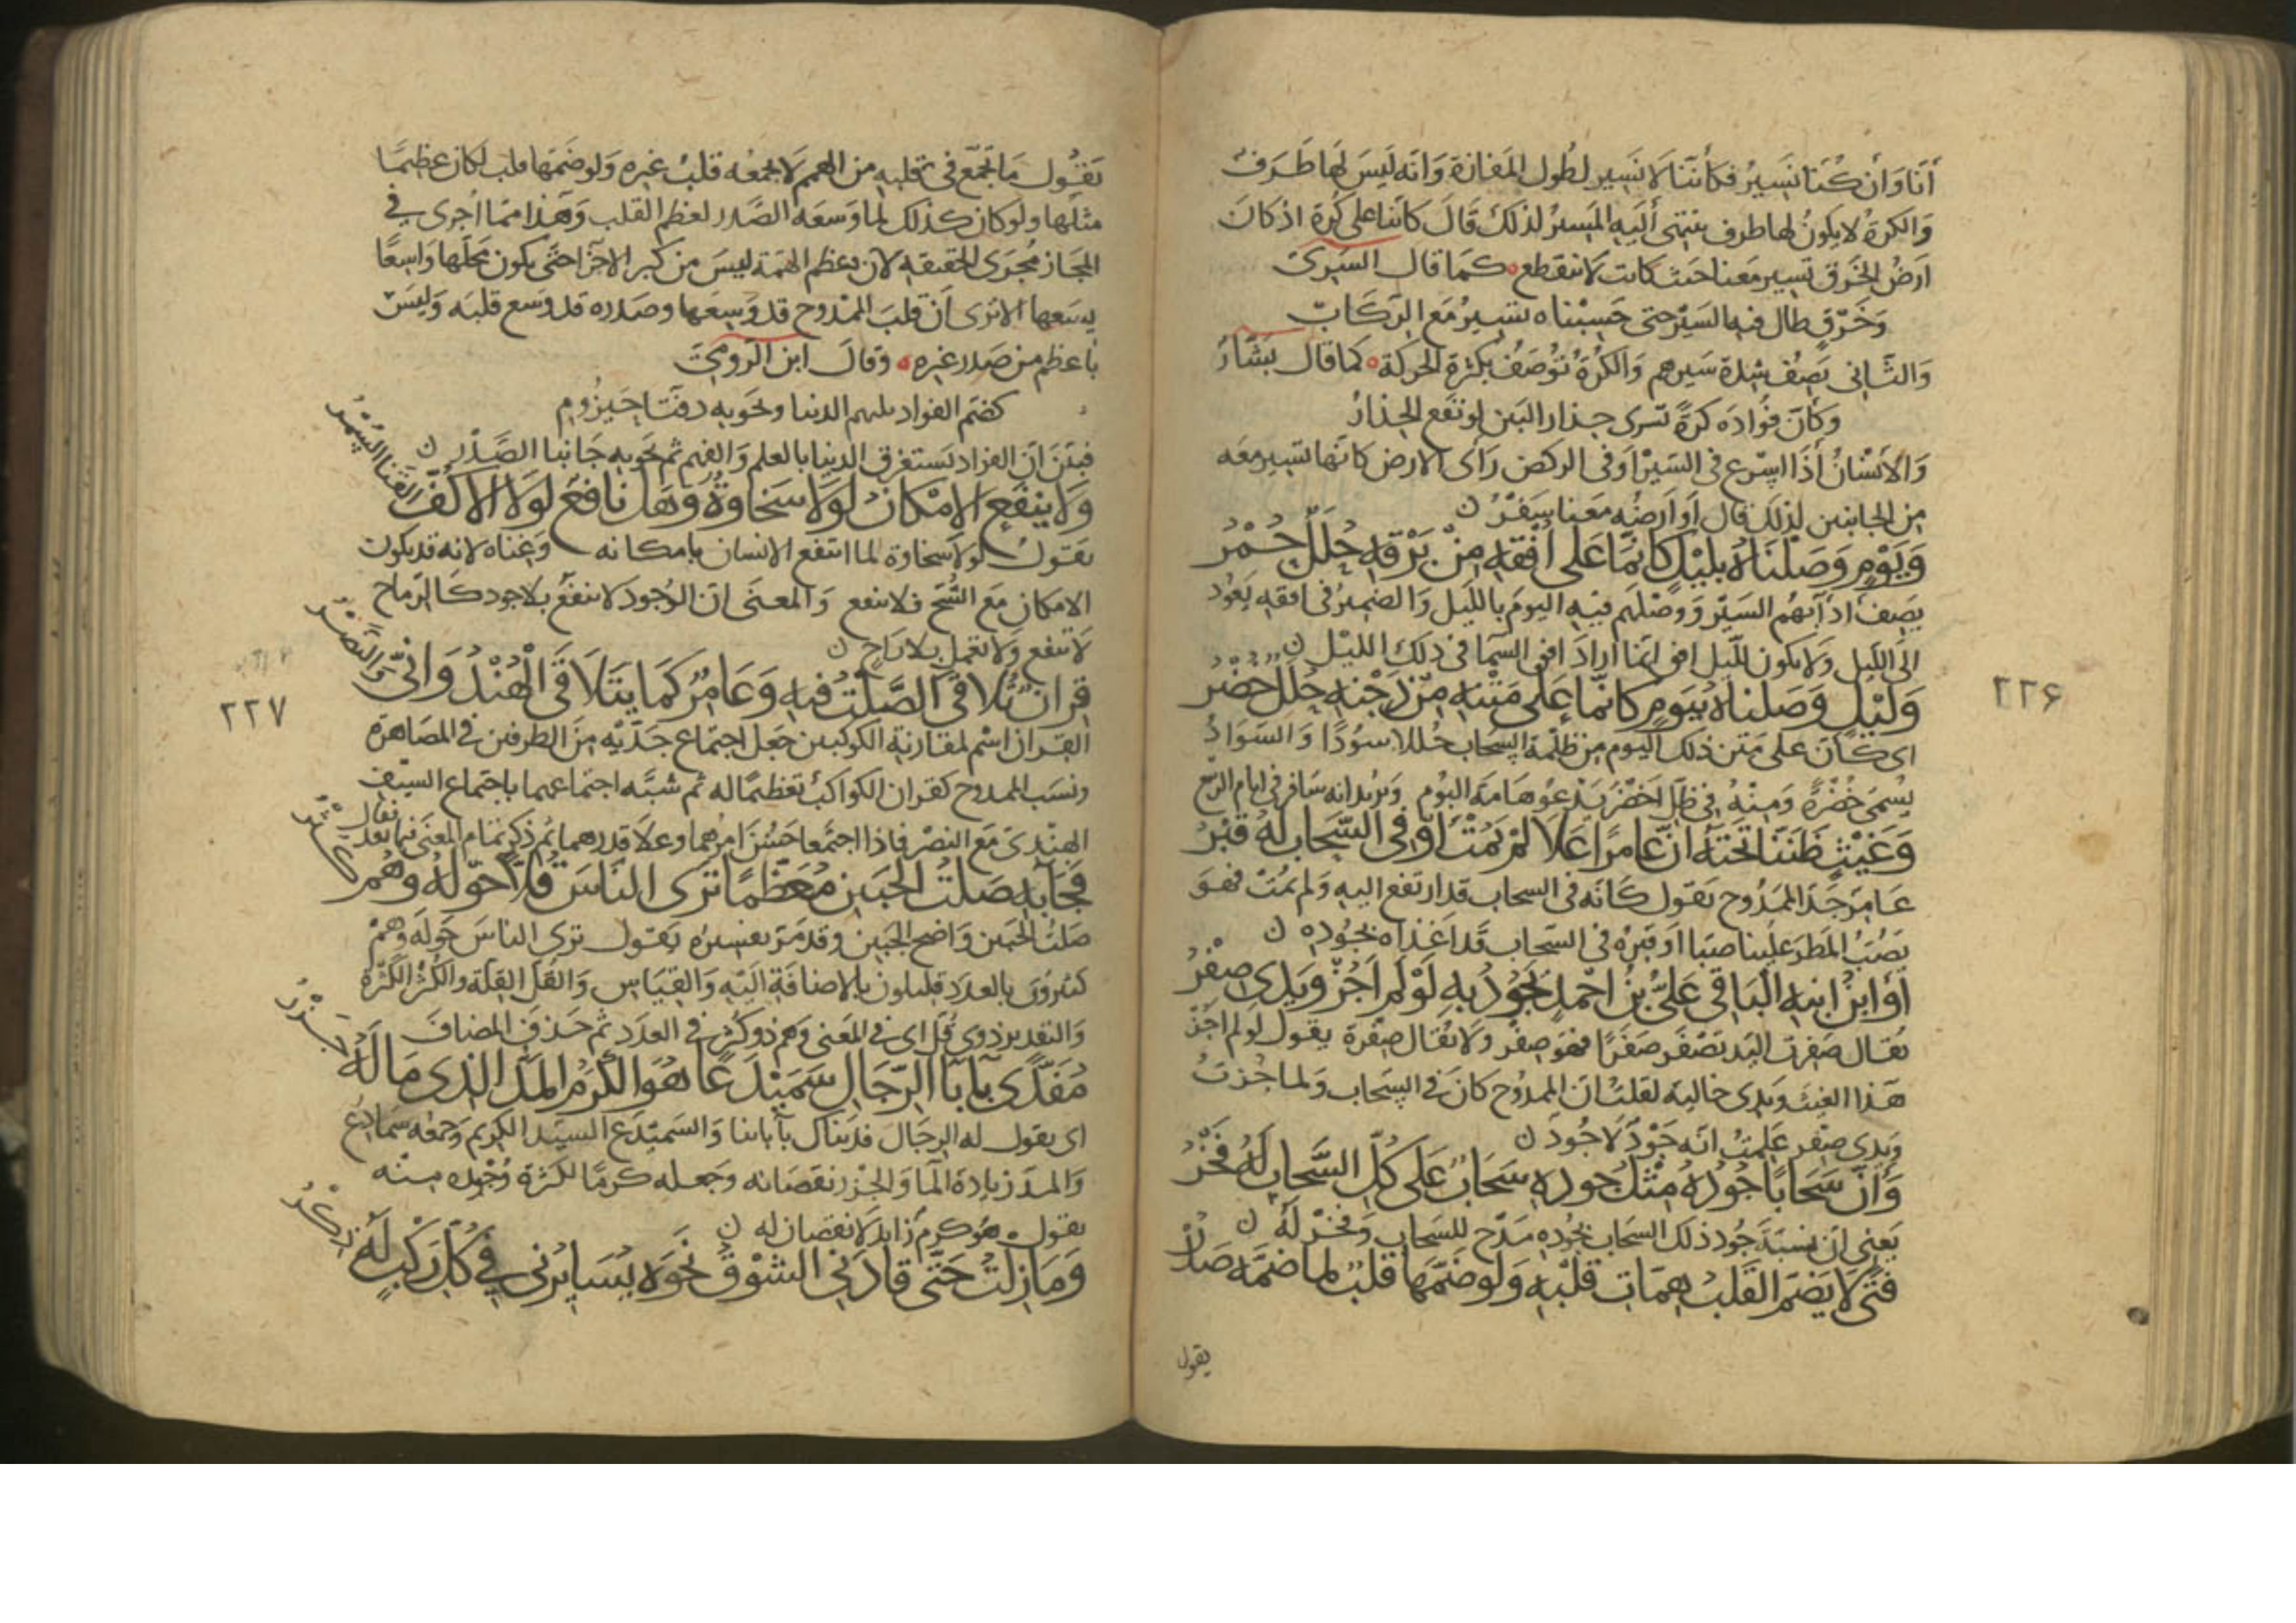 أنا وان كنا نسير فكأننا لا نسير لطول المفازة وانه ليس لها طرف
والكرة لا يكون لها طرف ينتهى أليه المسير لذلك قال كاننا على كرة اذ كان
ارض الخرق تسير معنا حيث كانت لا تنقطع كما قال السرى
وخرق طال فيه السير حتى حسبناه تسير مع الركاب
والثانى يصف شدة سيرهم والكرة توصف بكثرة الحركة كما قال بشار
وكأن فؤاده كرة تنزى حذار البين لو نفع الحذار
والانسان أذا اسرع فى السير او فى الركض رأى الارض كانها تسير معه
من الجانبين لذلك قال أو ارضه معنا سفر
ويوم وصلناه بليل كانما على افقه من برقه حلل حمر
يصف ادآبهم السير ووصلهم فيه اليوم بالليل والضمير فى افقه يعود
الى الليل ولا يكون لليل افق انما اراد افق السما فى ذلك الليل
وليل وصلناه بيوم كانما على متنه من دجنه حلل خضر
اى كان على متن ذلك اليوم من ظلمة السحاب حللا سودا والسواد
يسمى خضرة ومنه فى ظل اخضر يدعو هامه البوم ويريد انه سافر فى ايام الربيع
وغيث ظننا تحته ان عامرا علا لم يمت او فى السحاب له قبر
عامر جد الممدوح يقول كانه فى السحاب قد ارتفع اليه ولم يمت فهو
يصب المطر علينا صبا او قبره فى السحاب قد اغذاه بجوده
او ابن ابنه الباقى على بن احمد يجود به لو لم اجز ويدى صفر
يقال صفرت اليد تصفر صفرا فهو صفر ولا يقال صفرة يقول لو لم اجز
هذا الغيث ويدى خالية لقلت ان الممدوح كان فى السحاب ولما جزت
ويدى صفر علمت انه جود لا جود
وان سحابا جوده مثل جوده سحاب على كل السحاب له فخر
يعنى ان نسبة جود ذلك السحاب بجوده مدح للسحاب وفخر له
فتى لا يضم القلب همات قلبه ولو ضمها قلب لما ضمه صدر
يقول
٢٢۶
يقول ما تجمع فى قلبه من الهمم لا يجمعه قلب غيره ولو ضمها قلب لكان عظيما
مثلها ولو كان كذلك لما وسعه الصدر لعظم القلب وهذا مما اجرى فى
المجاز مجرى الحقيقه لان عظم الهمة ليس من كبر الاجزا حتى يكون محلها واسعا
يسعها الا ترى ان قلب الممدوح قد وسعها وصدره قد وسع قلبه وليس
باعظم من صدر غيره وقال ابن الرومى
كضم الفواد يلتهم الدنيا وتحويه دفتا حيزوم
فبين ان الفؤاد يستغرق الدنيا بالعلم والفهم ثم يحويه جانبا الصدر
ولا ينفع الامكان لولا سخاوة وهل نافع لولا الاكف القنا السمر
يقول لولا سخاوة لما انتفع الانسان بامكانه وغناه لانه قد يكون
الامكان مع الشح فلا ينفع والمعنى ان الوجود لا ينفع بلا جود كالرماح
لا تنفع ولا تعمل بلا راح
قران تلاقى الصلت فيه وعامر كما يتلاقى الهندوانى والنصر
القران اسم لمقارنة الكوكبين جعل اجتماع جديه من الطرفين فى المصاهرة
ونسب الممدوح كقران الكواكب تعظيما له ثم شبه اجتماعهما باجتماع السيف
الهندى مع النصر فاذا اجتمعا حسن امرهما وعلا قدرهما ثم ذكر تمام المعنى فيما بعد فقال
فجآبه صلت الجبين معظما ترى الناس قلا حوله وهم كثر
صلت الجبين واضح الجبين وقد مر تفسيره يقول ترى الناس حوله وهم
كثيرون بالعدد قليلون بالاضافة اليه والقياس والقل القلة والكثر الكثرة
والتقدير ذوى قل اى فى المعنى وهم ذو كثر فى العدد ثم حذف المضاف
مفدى بآبآ الرجال سميدعا هو الكرم المد الذى ماله جزر
اى يقول له الرجال فديناك بآبائنا والسميدع السيد الكريم وجمعه سمادع
والمد زيادة الما والجزر نقصانه وجعله كرما لكثرة وجوده منه
يقول هو كرم زايد لا نقصان له
ومازلت حتى قادنى الشوق نحوه يسايرنى فى كل ركب له ذكر
٢٢٧